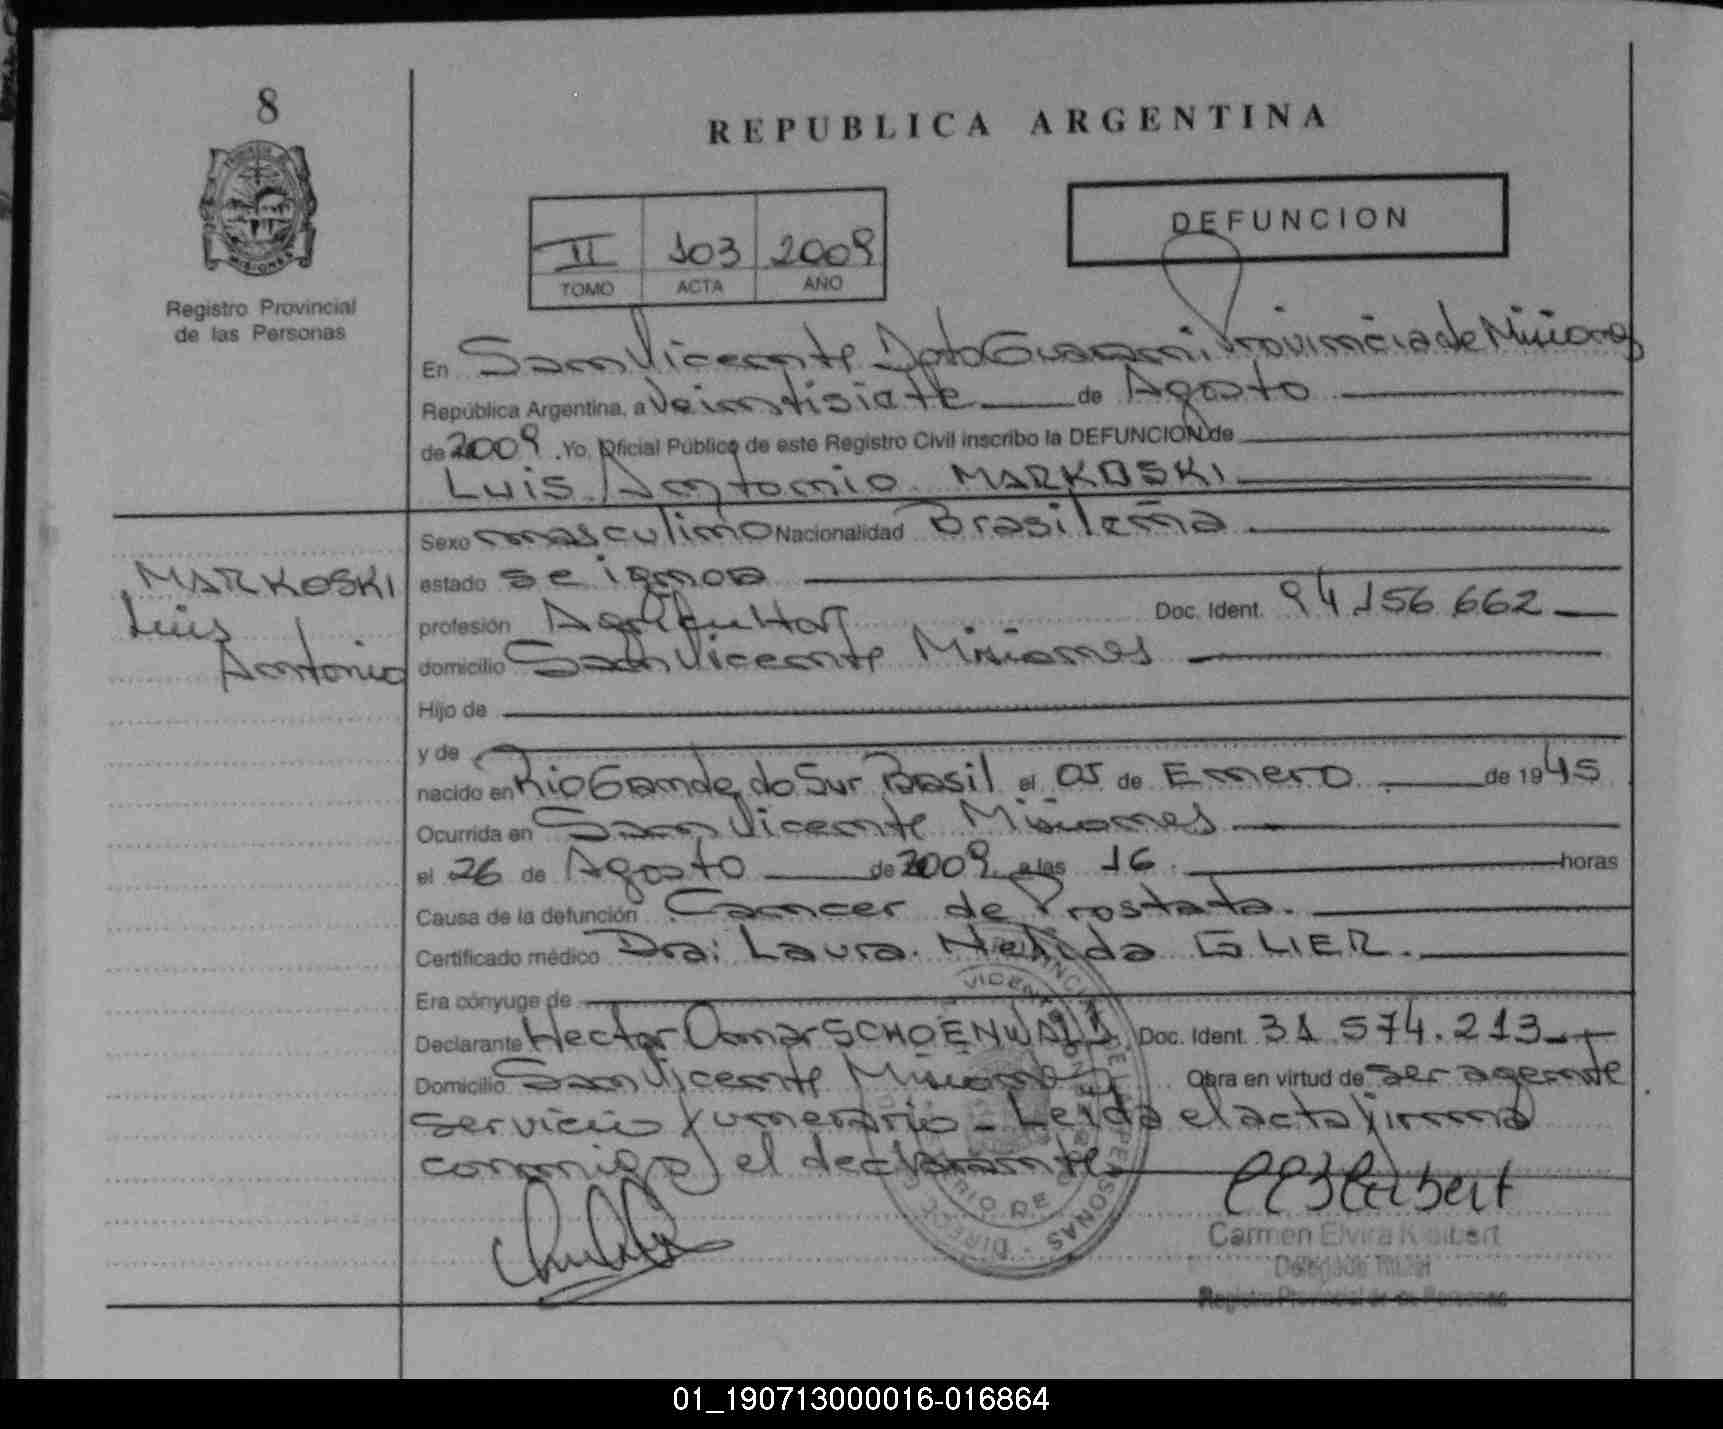 8
REPUBLICA ARGENTINA
DEFUNCION
II 103 2009
TOMO ACTA AÑO
MISIONES
Registro Provincial
de las Personas
En San Vicente Dpto Guarani, Provincia de Misiones
República Argentina, a Veintisiete de Agosto
de 2009. Yo, Oficial Público de este Registro Civil inscribo la DEFUNCION de
Luis Antonio MARKOSKI
Sexo masculino Nacionalidad Brasileña
MARKOSKI
Luis
Antonio
estado se ignora
profesión Agricultor Doc. Ident. 94.156.662
domicilio San Vicente Misiones
Hijo de
y de
nacido en Rio Grande do Sur Brasil el 05 de Enero de 1945
Ocurrida en San Vicente Misiones
el 26 de Agosto de 2009 a las 16 horas
Causa de la defunción Cancer de Prostata.
Certificado médico Dra: Laura Nelida GLIER.
Era cónyuge de
Declarante Hector Omar SCHOENWALD Doc. Ident. 31.574.213
Domicilio San Vicente Misiones Obra en virtud de ser agente
servicio funerario - Leida el acta firma
conmigo el declarante
Carmen Elvira Klaibert
Delegada Titular
Registro Provincial de las Personas
01_190713000016-016864